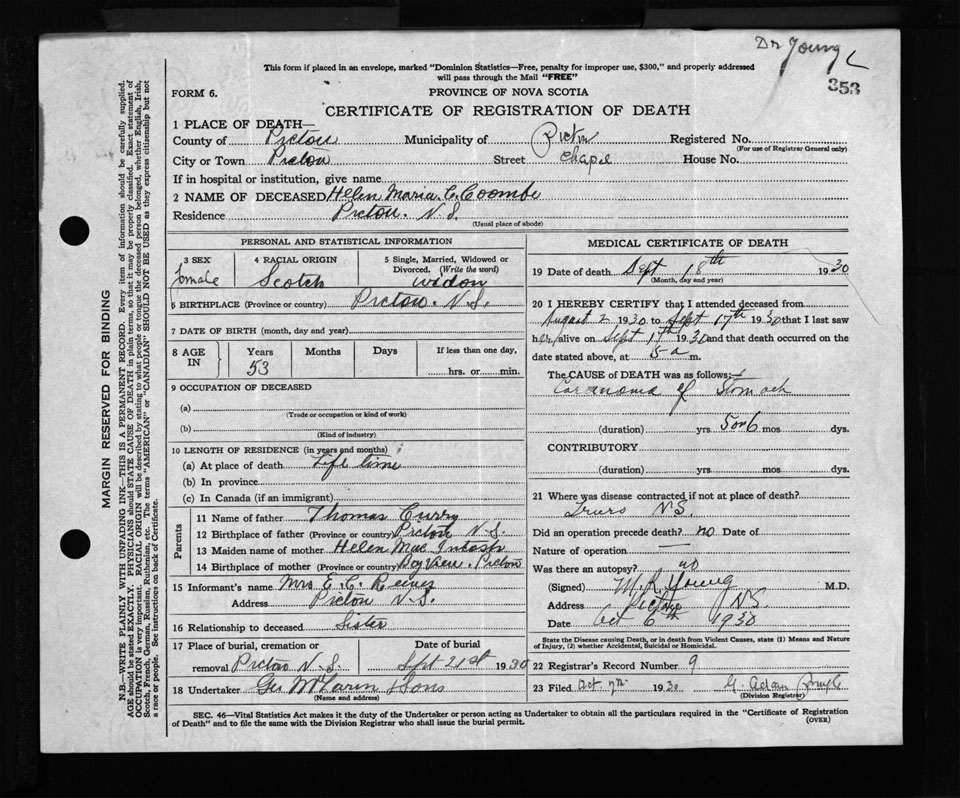 Dr Young
This form if placed in an envelope, marked "Dominion Statistics—Free, penalty for improper use, $300," and properly addressed
will pass through the Mail "FREE"
353
FORM 6.
PROVINCE OF NOVA SCOTIA
CERTIFICATE OF REGISTRATION OF DEATH
1 PLACE OF DEATH—
County of Pictou Municipality of Pictou Registered No.
(For use of Registrar General only)
City or Town Pictou Street Chapel House No.
If in hospital or institution, give name
2 NAME OF DECEASED Helen Maria C. Coombe
Residence Pictou. N.S.
(Usual place of abode)
PERSONAL AND STATISTICAL INFORMATION
3 SEX 4 RACIAL ORIGIN 5 Single, Married, Widowed or
Divorced. (Write the word)
female Scotch widow
6 BIRTHPLACE (Province or country) Pictou. N.S.
7 DATE OF BIRTH (month, day and year)
8 AGE IN Years Months Days If less than one day,
53 hrs. or min.
9 OCCUPATION OF DECEASED
(a)
(Trade or occupation or kind of work)
(b)
(Kind of industry)
10 LENGTH OF RESIDENCE (in years and months)
(a) At place of death Life time
(b) In province
(c) In Canada (if an immigrant)
Parents
11 Name of father Thomas Curry
12 Birthplace of father (Province or country) Pictou N.S.
13 Maiden name of mother Helen MacIntosh
14 Birthplace of mother (Province or country) Bay View. Pictou
15 Informant's name Mrs E. C. Reeves
Address Pictou N.S.
16 Relationship to deceased Sister
17 Place of burial, cremation or Date of burial
removal Pictou N.S. Sept 21st 1930
18 Undertaker Geo McLaren & Sons
(Name and address)
MEDICAL CERTIFICATE OF DEATH
19 Date of death Sept 18th 1930
(Month, day and year)
20 I HEREBY CERTIFY that I attended deceased from
August 2 1930 to Sept 17th 1930 that I last saw
her alive on Sept 17th 1930 and that death occurred on the
date stated above, at 5 a m.
The CAUSE of DEATH was as follows:—
Carcinoma of Stomach
(duration) yrs 5 or 6 mos dys.
CONTRIBUTORY
(duration) yrs. mos. dys.
21 Where was disease contracted if not at place of death?
Truro N.S.
Did an operation precede death? no Date of
Nature of operation —
Was there an autopsy? no
(Signed) M.R. Young M.D.
Address Pictou N.S.
Date Oct 6th 1930
State the Disease causing Death, or in death from Violent Causes, state (1) Means and Nature
of Injury, (2) whether Accidental, Suicidal or Homicidal.
22 Registrar's Record Number 9
23 Filed Oct 7th 1930 G. Adam
(Division Registrar)
SEC. 46—Vital Statistics Act makes it the duty of the Undertaker or person acting as Undertaker to obtain all the particulars required in the "Certificate of Registration
of Death" and to file the same with the Division Registrar who shall issue the burial permit.
(OVER)
MARGIN RESERVED FOR BINDING
N.B.—WRITE PLAINLY WITH UNFADING INK—THIS IS A PERMANENT RECORD. Every item of information should be carefully supplied.
AGE should be stated EXACTLY. PHYSICIANS should STATE CAUSE OF DEATH in plain terms, so that it may be properly classified. Exact statement of
OCCUPATION is very important. RACIAL ORIGIN will be described by stating to what people or tongue the deceased person belonged, whether English, Irish,
Scotch, French, German, Russian, Ruthenian, etc. The terms "AMERICAN" or "CANADIAN" SHOULD NOT BE USED as they express citizenship but not
a race or people. See instructions on back of Certificate.